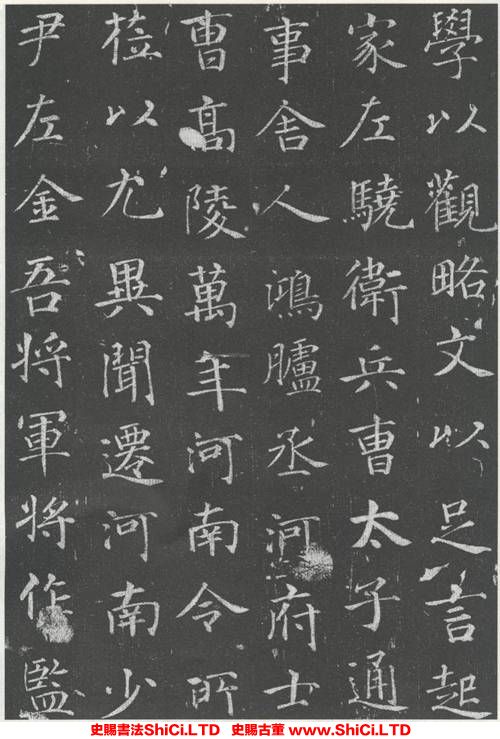 學以觀略文以足言起
家左驍衛兵曹太子通
事舍人鴻臚丞河府士
曹高陵萬年河南令所
莅以尤異聞遷河南少
尹左金吾將軍將作監
史賜書法ShiCi.LTD 史賜古董 www.ShiCi.LTD